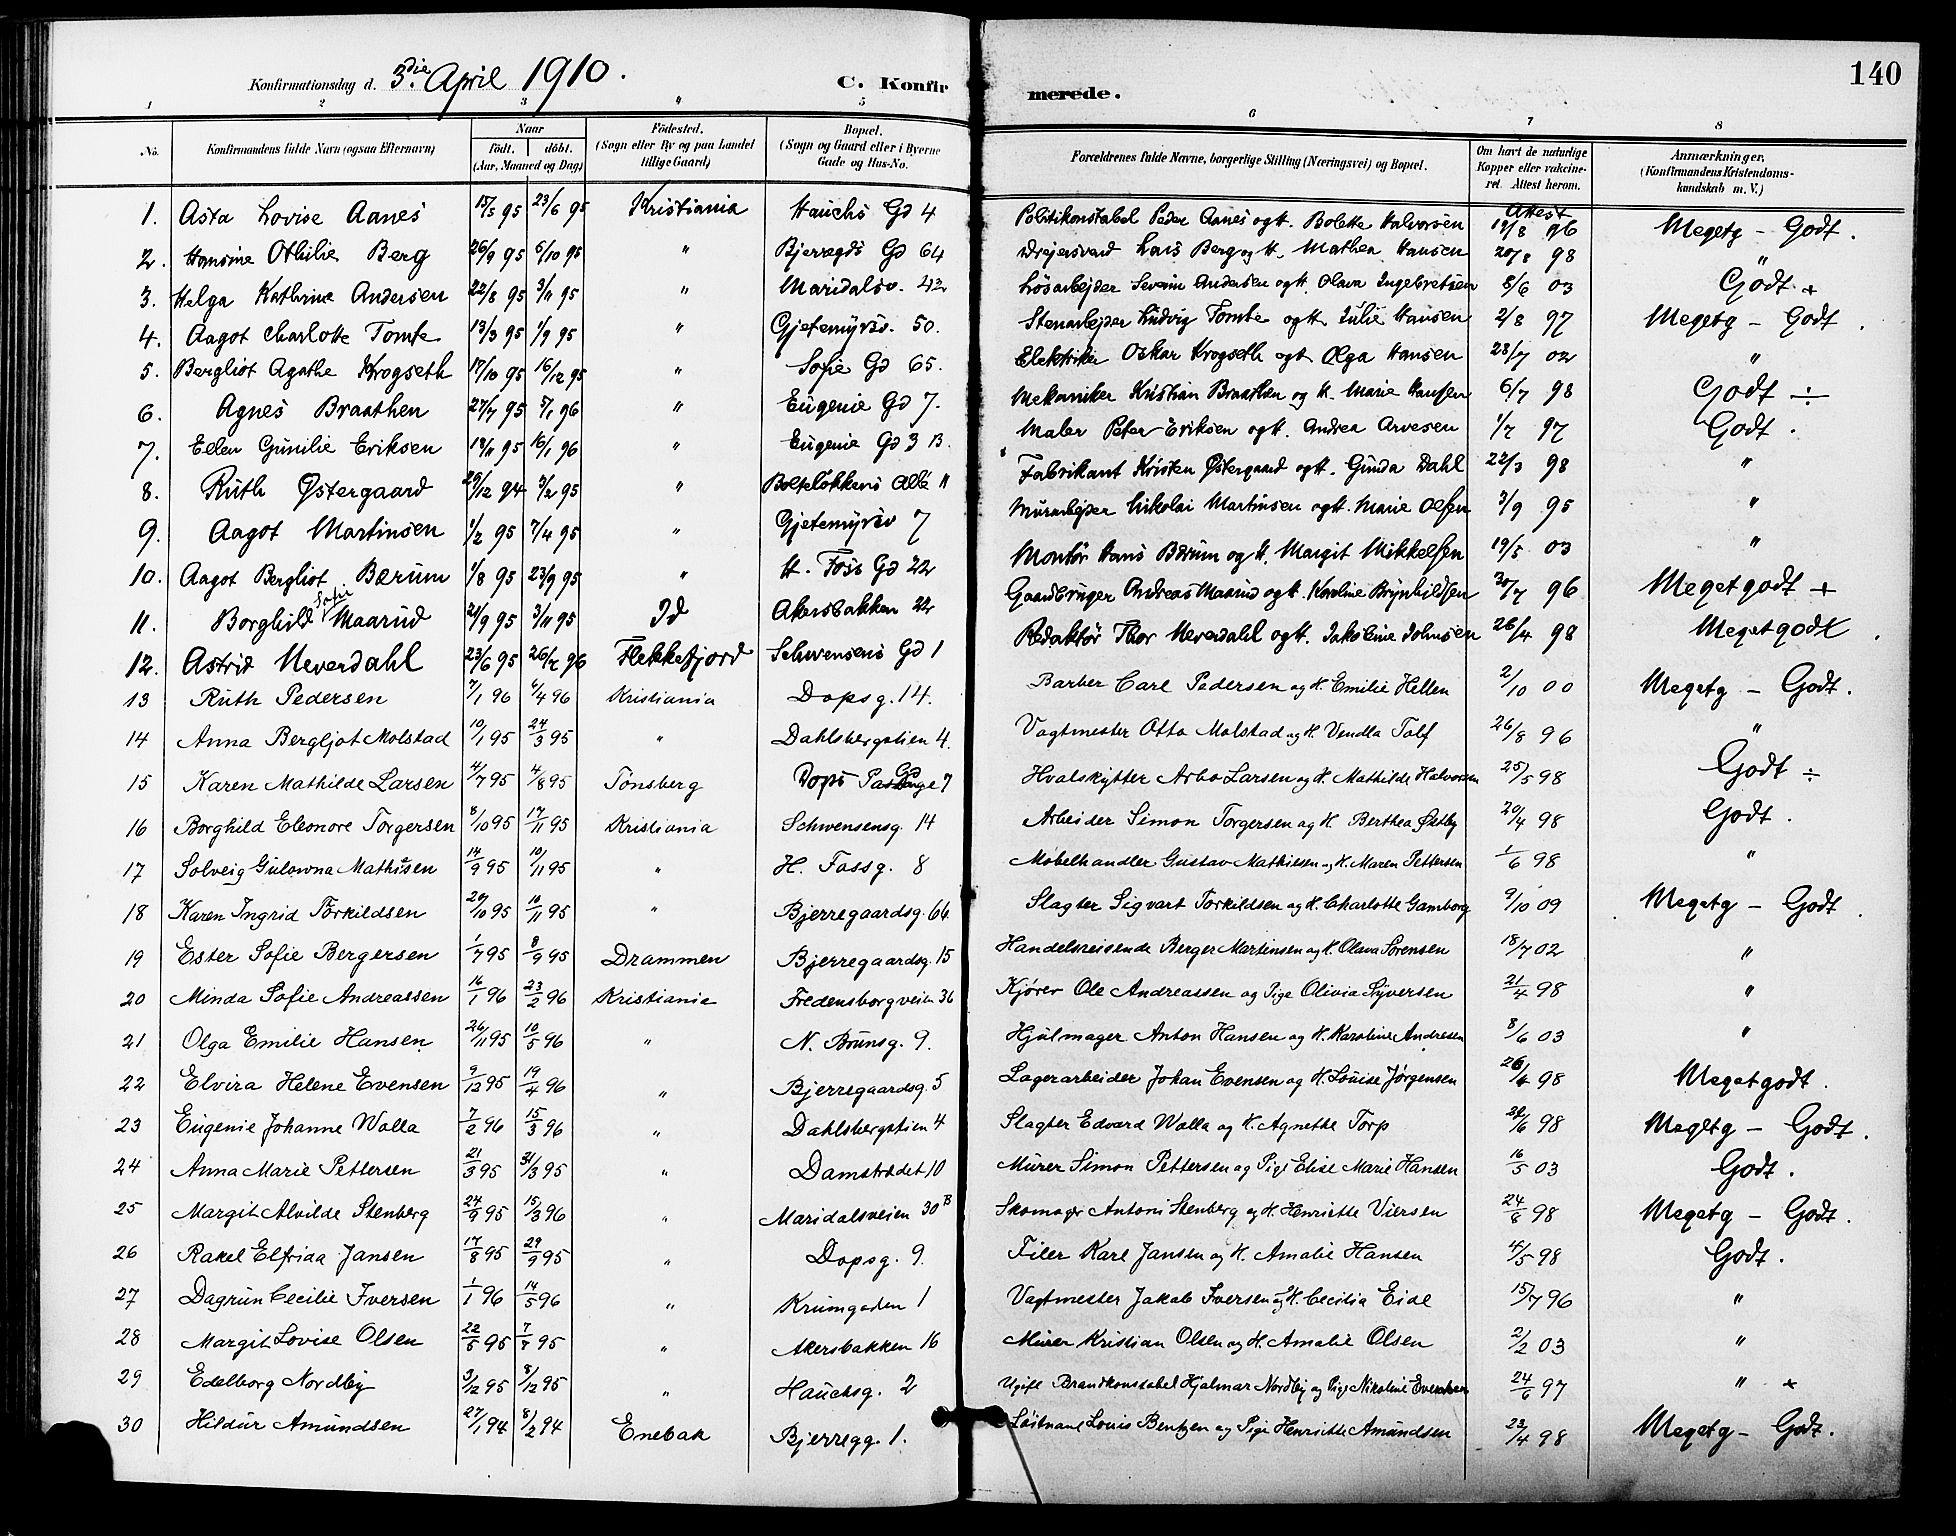 140
Konfirmationsdag d. 3die April 1910.
C. Konfirmerede.
1 2 3 " 5 6 7 8
No. Konfirmandens fulde Navn (ogsaa Efternavn) Naar født. døbt. (Aar, Maaned og Dag) Fødested. (Sogn eller By og paa Landet tillige Gaard) Bopæl. (Sogn og Gaard eller i Byerne Gade og Hus-No. Forældrenes fulde Navne, borgerlige Stilling (Næringsvei) og Bopæl. Om havt de naturlige Kopper eller vakcineret. Attest herom. Anmærkninger. (Konfirmandens Kristendomskundskab m. V.)
Attest
1. Asta Lovise Aanes 15/5 95 23/6 95 Kristiania Hauchs Gd 4 Politikonstabel Peder Aanes og H. Bolette Halvorsen 19/8 96 Megetg - Godt.
2. Hansine Othilie Berg 26/9 95 6/10 95 " Bjerregds Gd 64 Drejersvend Lars Berg og H. Mathea Hansen 20/8 98 "
3. Helga Kathrine Andersen 22/8 95 3/11 95 " Maridalsv. 42 Løsarbejder Severin Andersen og H. Olava Ingebretsen 8/6 03 Godt +
4. Aagot Charlotte Tomte 13/3 95 1/9 95 " Gjetemyrsv. 50. Stenarbejder Ludvig Tomte og H. Julie Hansen 2/8 97 Megetg - Godt.
5. Bergliot Agathe Krogseth 17/10 95 16/12 95 " Sofie Gd 65. Elektriker Oskar Krogseth og H. Olga Hansen 28/7 02 "
6. Agnes Braathen 27/7 95 5/1 96 " Eugenie Gd 7. Mekaniker Kristian Braathen og H. Marie Hansen 6/7 98 Godt ÷
7. Ellen Gunilie Eriksen 18/11 95 16/1 96 " Eugenie Gd 3 B. Maler Peter Eriksen og H. Andrea Arvesen 1/7 97 Godt.
8. Ruth Østergaard 29/12 94 3/2 95 " Bolteløkkens Allé 11 Fabrikant Kristen Østergaard og H. Gunda Dahl 22/3 98 "
9. Aagot Martinsen 1/2 95 7/4 95 " Gjetemyrsv 7 Murarbejder Nikolai Martinsen og H. Marie Olsen 3/9 95 "
10. Aagot Bergliot Bærum 1/8 95 23/9 95 " H. Foss Gd 22 Montør Hans Bærum og H. Margit Mikkelsen 19/5 03 "
11. Borghild Sofie Maarud 21/9 95 3/11 95 Id Akersbakken 22 Gaardbruger Andreas Maarud og H. Karoline Brynhildsen 30/7 96 Megetgodt +
12. Astrid Neverdahl 23/6 95 26/2 96 Flekkefjord Schwensens Gd 1 Redaktør Thor Neverdahl og H. Jakobine Johnsen 26/4 98 Megetgodt.
13 Ruth Pedersen 7/1 96 6/4 96 Kristiania Dopsg. 14. Barber Carl Pedersen og H. Emilie Hellen 2/10 00 Megetg - Godt.
14 Anna Bergljot Molstad 10/1 95 24/3 95 " Dahlsbergstien 4. Vagtmester Otto Molstad og H. Vendla Tolf 26/8 96 "
15 Karen Mathilde Larsen 4/7 95 4/8 95 Tønsberg Dops Gd 7 Hvalskytter Arbo Larsen og H. Mathilde Halvorsen 25/5 98 Godt ÷
16 Borghild Eleonore Torgersen 8/10 95 17/11 95 Kristiania Schwensensg. 14 Arbeider Simon Torgersen og H. Berthea Østby 20/4 98 Godt.
17 Solveig Gulowna Mathisen 14/9 95 10/11 95 " H. Fossg. 8 Møbelhandler Gustav Mathisen og H. Maren Pettersen 1/6 98 "
18 Karen Ingrid Torkildsen 20/10 95 10/11 95 " Bjerregaardsg. 66. Slagter Sigvart Torkildsen og H. Charlotte Gamborg 9/10 09 Megetg - Godt.
19 Ester Sofie Bergersen 1/7 95 8/9 95 Drammen Bjerregaardsg. 15 Handelsreisende Berger Martinsen og H. Olava Sørensen 18/7 02 "
20 Minda Sofie Andreassen 16/1 96 23/2 96 Kristiania Fredensborgveien 36 Kjører Ole Andreassen og Pige Olivia Syversen 21/4 98 "
21 Olga Emilie Hansen 26/11 95 10/5 96 " N. Brunsg. 9. Hjulmager Anton Hansen og H. Karoline Andresen 8/6 03 "
22 Elvira Helene Evensen 9/12 95 19/4 96 " Bjerregaardsg. 5 Lagerarbeider Johan Evensen og H. Louise Jørgensen 26/4 98 Megetgodt.
23 Eugenie Johanne Walla 7/2 96 15/3 96 " Dahlsbergstien 4 Slagter Edvard Walla og H. Agnethe Torp 24/6 98 Megetg - Godt.
24 Anna Marie Pettersen 21/3 95 31/3 95 " Damstrædet 10 Murer Simon Pettersen og Pige Elise Marie Hansen 16/5 03 Godt.
25 Margit Alvilde Stenberg 24/9 95 15/3 96 " Maridalsveien 30B Skomager Antoni Stenberg og H. Henriette Viersen 24/8 98 Megetg - Godt.
26 Rakel Elfrida Jansen 17/8 95 29/9 95 " Dopsg. 9. Filer Karl Jansen og H. Amalie Hansen 4/5 98 Godt.
27 Dagrun Cecilie Iversen 1/1 96 14/5 96 " Krumgaden 1 Vagtmester Jakob Iversen og H. Cecilia Eide 15/7 96 "
28 Margit Lovise Olsen 22/5 95 7/7 95 " Akersbakken 16 Murer Kristian Olsen og H. Amalie Olsen 2/2 03 "
29 Edelborg Nordby 3/12 95 8/12 95 " Hauchsg. 2 Ugift Brandkonstabel Hjalmar Nordby og Pige Nikoline Evensen 24/6 97 " +
30 Hildur Amundsen 27/1 94 8/2 94 Enebak Bjerregg. 1. Løitnant Louis Bentzen og Pige Henriette Amundsen 23/4 98 Megetg - Godt.